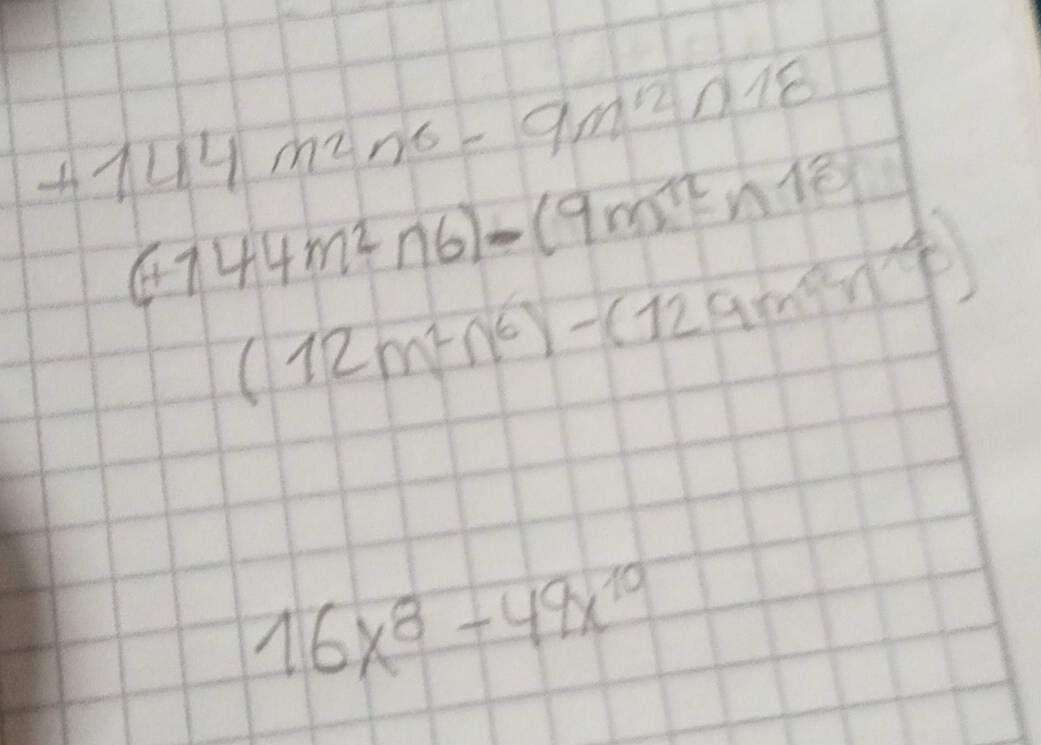 +144m²n⁶ - 9m¹²n18
(+144m²n6)-(9m¹²n18
(12m²n⁶)-(12
16x⁸ - 49x¹⁰